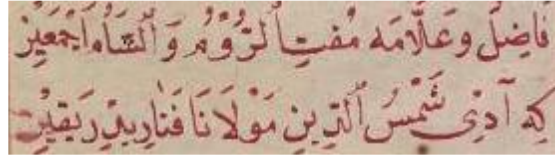 فَاضِلْ وَعَلَّامَه مُفْتِئ ٱلرُّوْمُ وَٱلشَّامْ اَجْمَعِيْنْ
كِه آدِيْ شَمْسُ ٱلدِّينِ مَوْلَانَا فَنَارِيدِرْ يَقِيْنْ